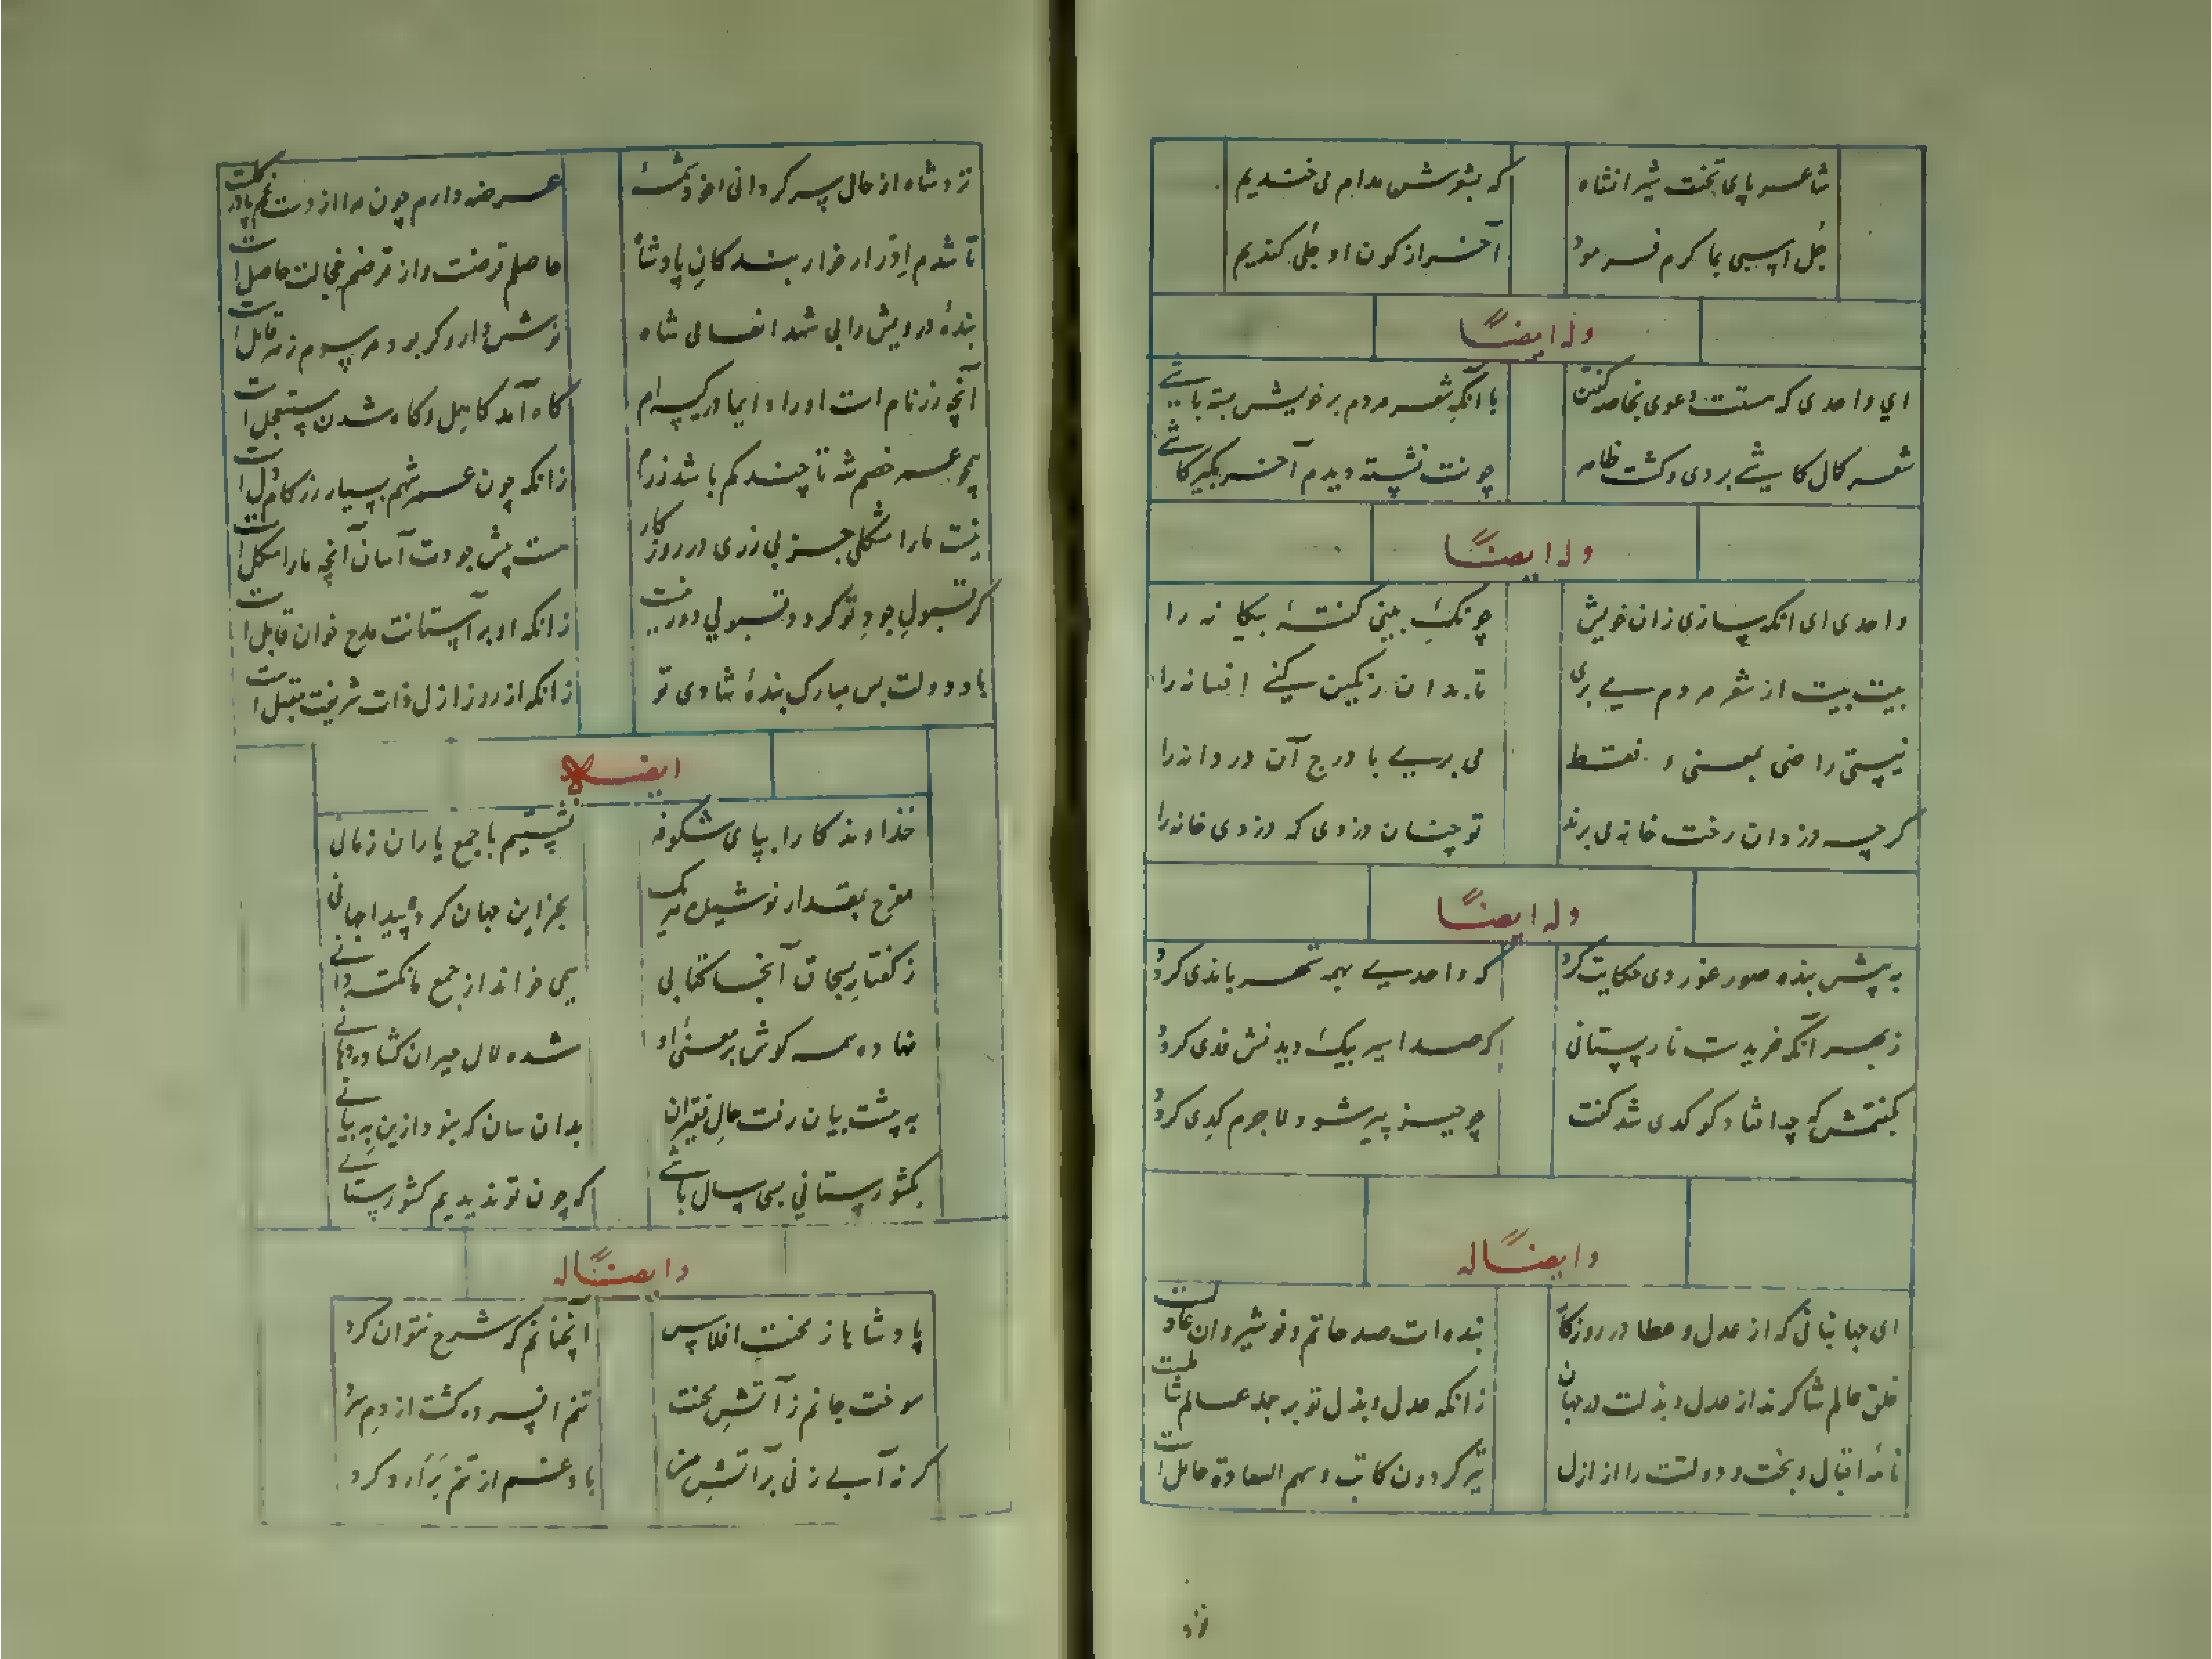 شاعر پای تخت شیرانشاه که بشعرش مدام می خندیم
جُل اسپی بما کرم فرمود آخر از کون او جُلی کندیم
وله ایضاً
ای واحدی که هستت دعوی بخاصه گفتن با آنکه شعر مردم بر خویش بسته باشی
شعر کمال کاشی بردی وکشت ظاهر چونت نشسته دیدم آخر بگیر کاشی
وله ایضاً
واحدی ای انکه سازی زان خویش چونک بینی گفتهٔ بیگانه را
بیت بیت از شعر مردم می بری تا بدان رنگین کنی افسانه را
نیستی راضی بمعنی و فقط می بری با درج آن دردانه را
گرچه دزدان رخت خانه می برند تو چنان دزدی که دزدی خانه را
وله ایضاً
به پیش بنده صور غوردی حکایت کرد که واحدی همه شهر باندی کرد
ز بهر آنکه خریدست نارپستانی که صد اسیر بیک دیدنش فدی کرد
بگفتمش که چه افتاد کو کدی شد گفت چو حیز پیر شود لاجرم کدی کرد
وایضاً له
ای جهانبانی که از عدل و عطا در روزگار بنده ات صد حاتم و نوشیروان عادلست
خلق عالم شاکرند از عدل و بذلت در جهان زانکه عدل و بذل تو بر جمله عالم شاملست
نامهٔ اقبال و بخت و دولتت را از ازل تیر گردون کاتب و سهم السعادة حاملست
نزد
نزد شاه از حال سرگردانی خود عرضه دارم چون مرا از دست غم پا در گلست
تا شدم اِدرار خوار بندگانِ پادشاه حاصلم قرضست و از قرضم خجالت حاصلست
بندهٔ درویش را بی شهد انعامی شاه نوش دارو گر بود مرسوم زهر قاتلست
آنچه زر نام است او را دایما در کیسه ام گاه آمد کاهل و گاه شدن مستعجلست
همچو عمر خصم شه تا چند کم باشد زرم زانکه چون عمر شهم بسیار زر کام دلست
نیست ما را مشکلی جز بی زری در روزگار هست پیش جودت آسان آنچه ما را مشکلست
گر قبولِ جودِ تو گردد قبولی دور نیست زانکه او بر آستانت مدح خوان قابلست
باد دولت بس مبارک بندهٔ شادی تو زانکه از روز ازل ذات شریفت مقبلست
ایضاً له
خداوندکارا بپای شکوفه نشستیم با جمع یاران زمانی
مفرح بمقدار نوشیده هریک بجز این جهان کرده پیدا جهانی
ز گفتارِ بسحاق آنجا کتابی همی خواند از جمع ما نکته دانی
نهاده همه گوش بر معنیِ او شده لال حیران گشاده دهانی
به پیشت بیان رفت حالِ فقیران بدان سان که نبود ازین به بیانی
بکشورستانی بسی سال باشی که چون تو ندیدیم کشورستانی
وایضاً له
پادشاها ز محنتِ افلاس آنچنانم که شرح نتوان کرد
سوخت جانم ز آتشِ محنت تنم افسرده گشت از دمِ سرد
گر نه آبی زنی بر آتشِ من باد غم از تنم برآرد گرد